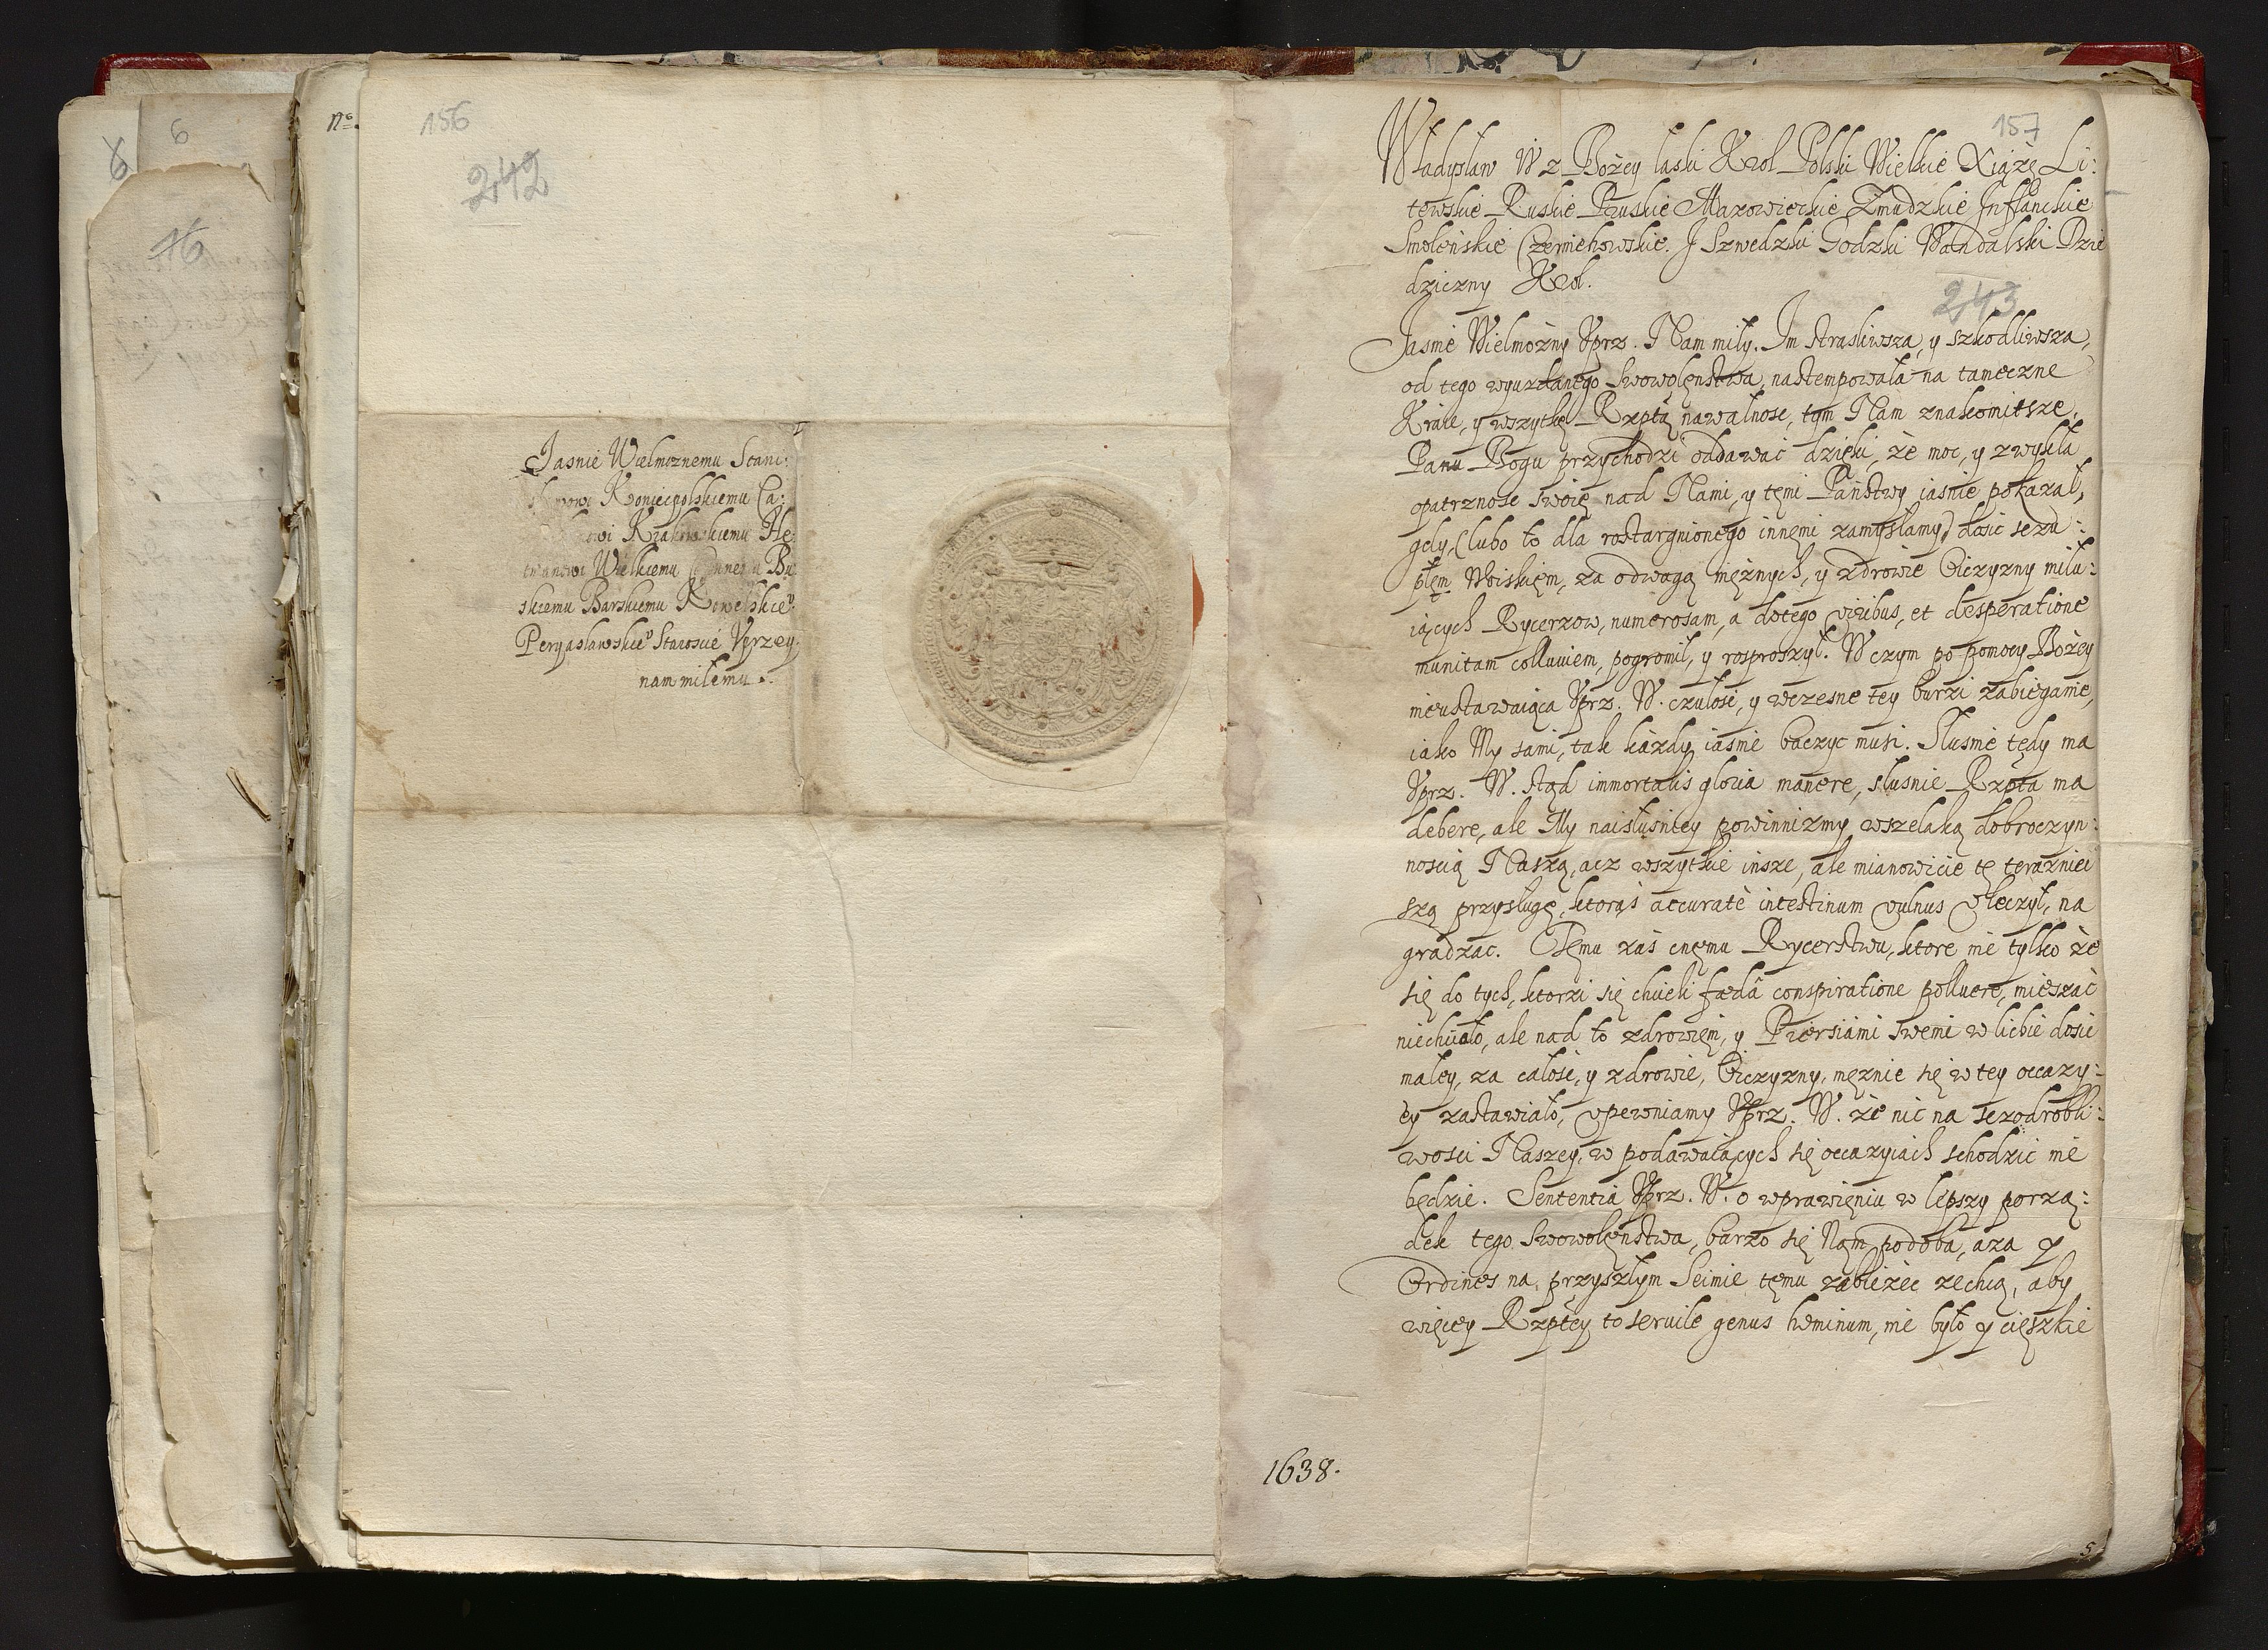 6
6
16
nº
156
242
Jasnie Wielmoznemu Stani:
Koniecpolskiemu Ca:
Krakowskiemu He:
tmanowi Wielkiemu Bu
skiemu Barskiemu Kowelskieº
Peryaslawskieº Staroscie Vprzey:
nam miłemu.
157
Władysław IV z Bożey łaski Krol Polski Wielkie Xiążę Li:
tewskie Ruskie Pruskie Mazowieckie Zmudzkie Inflanckie
Smolenskie Czerniehowskie. J Szwedzki Godzki Wandalski Dzie
dziczny Krol.
243
Jasnie Wielmożny Vprz. Nam miły. Im straśliwsza, y szkodliwsza,
od tego wyuzdanego swowolęnstwa, nastempowała na tameczne
Kraie, y wszytkę Rzptą nawałnosc, tym Nam znakomitsze,
Panu Bogu przychodzi oddawać dzięki, że moc, y zwykła
opatrznosc swoię nad Nami, y tęmi Państwy iasnie pokazał,
gdy, (lubo to dla roztargnionego innęmi zamysłamy) dosic sczu:
płęm Woiskięm, za odwagą męznych, y zdrowie Oiczyzny miłu:
iących Rycerzow, numerosam, a dotego viribus, et desperatione
munitam colluuiem, pogromił, y rosproszył. W czym po pomocy Bożey
nieustawaiąca Vprz. W. czułosc, y wczesne tey burzi zabieganie,
iako My sami, tak każdy iasnie baczyc musi. Słusnie tędy ma
Vprz. W. stąd immortalis gloria manere, słusnie Rzpta ma
debere, ale My naisłusniey powinnizmy wszelaką dobroczyn:
noscią Naszą, acz wszytkie insze, ale mianowicie tę terazniei
szą przysługę, ktorąs accuratè intestinum vulnus vleczył, na
gradzac. Tęmu zas cnęmu Rycerstwu, ktore nie tylko że
się do tych, ktorzi się chcieli fædâ conspiratione polluere, mieszać
niechciało, ale nad to zdrowięm, y Piersiami swemi w licbie dosic
małey, za całosc, y zdrowie, Oiczyzny, męznie się w tey occazy:
ey zastawiało, vpewniamy Vprz. W. że nic na sczodrobli:
wosci Naszey, w podawaiących się occazyiach schodzic nie
będzie. Sententia Vprz. W. o wprawięniu w lepszy porzą:
dek tego swowolęnstwa, barzo się Nam podoba, aza y
Ordines na przyszłym Seimie tęmu zabieżec zechcą, aby
więcey Rzptey to seruile genus hominum, nie było y cięszkie
1638.
5